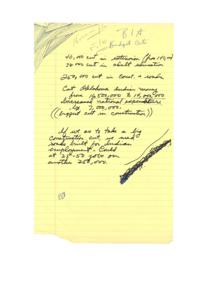 BIA
Budget Cut
40,000 cut in extension (from
26,000 cut in adult education
250,000 cut in const. + roads
Cut Oklahoma Indian money
from 16,500,000 to
decreases national expenditure
by 7,000,000.
(biggest cut in construction)
If we are to take a big
construction cut, we need
roads built for Indian
employment. Could
at 25-50 jobs on
another 250,000.